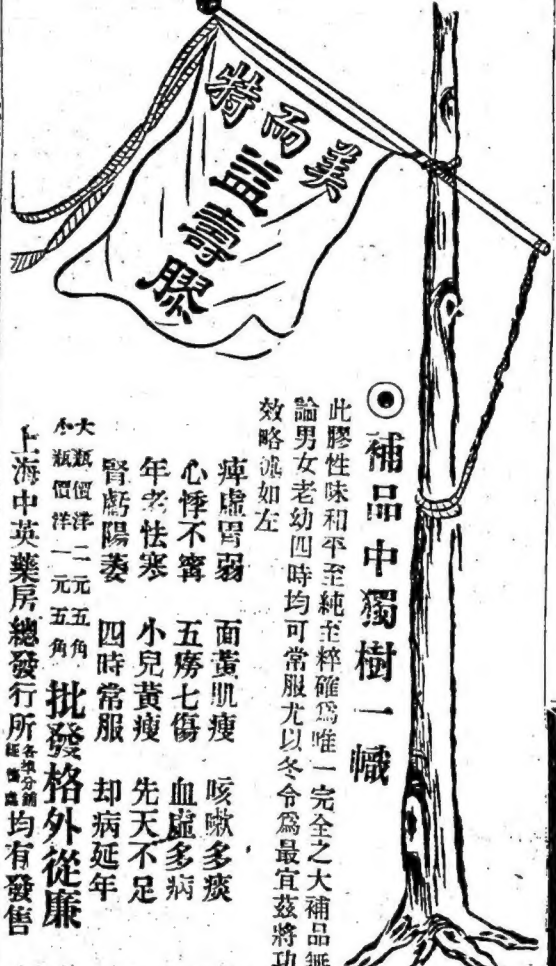 美而特
益壽膠
補品中獨樹一幟
此膠性味和平至純至粹確爲唯一完全之大補品無
論男女老幼四時均可常服尤以冬令爲最宜茲將功
效略述如左
脾虛胃弱 面黃肌瘦 咳嗽多痰
心悸不寗 五癆七傷 血虛多病
年老怯寒 小兒黃瘦 先天不足
腎虧陽萎 四時常服 却病延年
大瓶價洋二元五角
小瓶價洋一元五角
批發格外從廉
上海中英藥房總發行所各埠分銷經售處均有發售